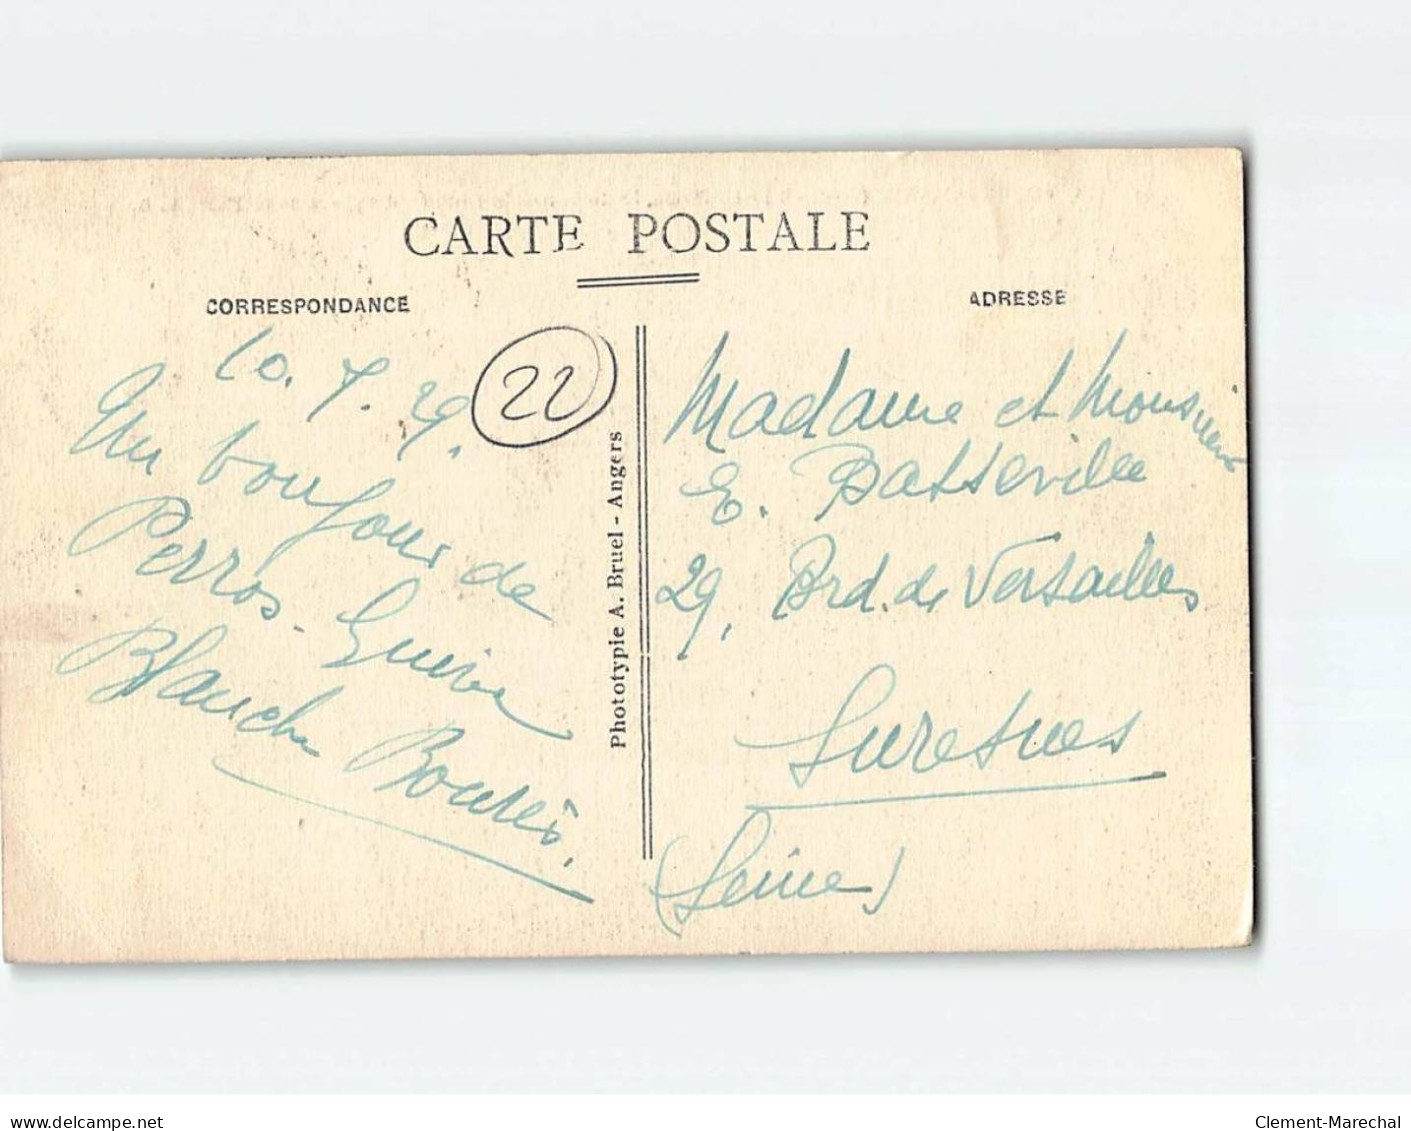 CARTE POSTALE
CORRESPONDANCE
ADRESSE
10. 7. 29.
22
Un bonjour de
Perros-Guirec
Blanche
Phototypie A. Bruel - Angers
Madame et Monsieur
E. Batteville
29, Brd. de Versailles
Suresnes
(Seine)
delcampe.net
Clement-Marechal